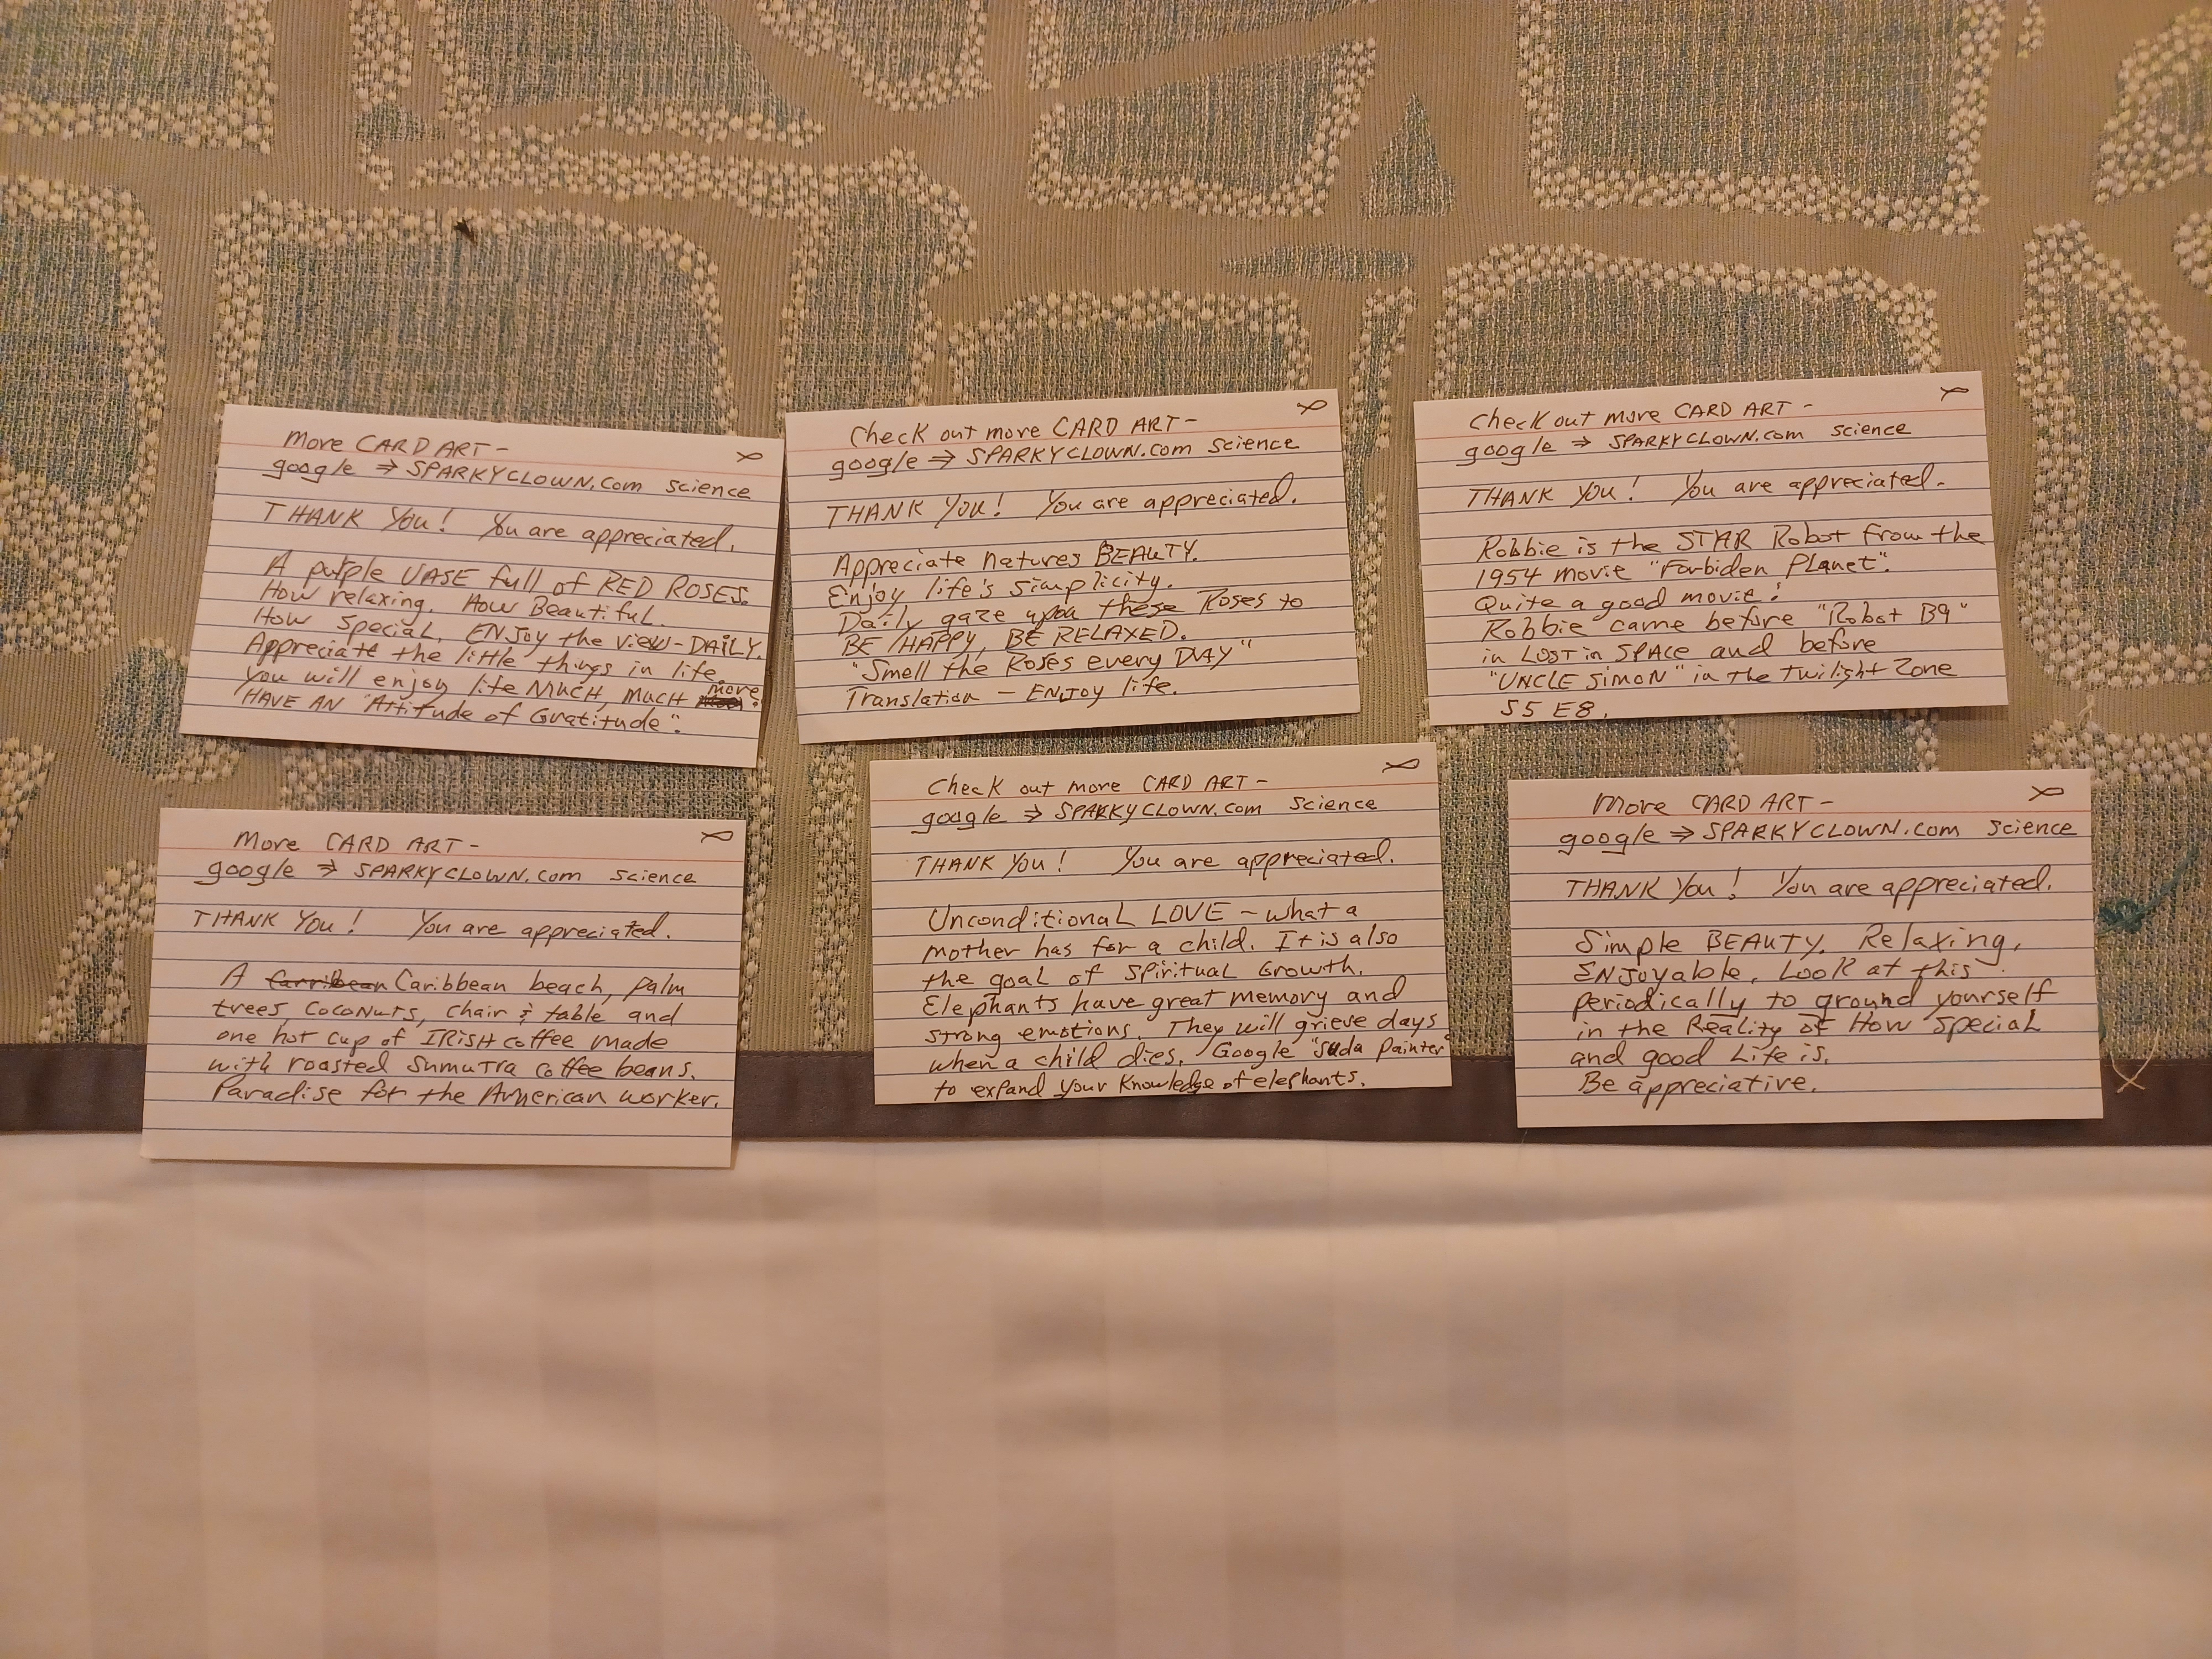 More CARD ART -
google ⇒ SPARKYCLOWN.com science
THANK You! You are appreciated.
A purple VASE full of RED ROSES.
How relaxing. How Beautiful.
How special. ENJoy the view - DAILY.
Appreciate the little things in life.
You will enjoy life MUCH, MUCH more.
HAVE AN "Attitude of Gratitude".
Check out more CARD ART -
google ⇒ SPARKYCLOWN.com science
THANK YOU! You are appreciated.
Appreciate Natures BEAUTY.
Enjoy life's simplicity.
Daily gaze upon these Roses to
BE HAPPY, BE RELAXED.
"Smell the Roses every DAY"
Translation - ENJOY life.
Check out more CARD ART -
google ⇒ SPARKYCLOWN.com science
THANK YOU! You are appreciated.
Robbie is the STAR Robot from the
1954 movie "Forbiden Planet".
Quite a good movie!
Robbie came before "Robot B9"
in LOST in SPACE and before
"UNCLE SIMON" in the Twilight Zone
S5 E8.
More CARD ART -
google ⇒ SPARKYCLOWN.com science
THANK YOU! You are appreciated.
A Carribean Caribbean beach, palm
trees, COCONUTS, chair & table and
one hot cup of IRISH coffee made
with roasted Sumutra coffee beans.
Paradise for the American worker.
Check out more CARD ART -
google ⇒ SPARKYCLOWN.com science
THANK YOU! You are appreciated.
Unconditional LOVE - what a
mother has for a child. It is also
the goal of Spiritual Growth.
Elephants have great memory and
strong emotions. They will grieve days
when a child dies. Google "Suda painter"
to expand your knowledge of elephants.
More CARD ART -
google ⇒ SPARKYCLOWN.com science
THANK YOU! You are appreciated.
Simple BEAUTY. Relaxing,
ENJOYable. Look at this
periodically to ground yourself
in the Reality of How Special
and good Life is.
Be appreciative.